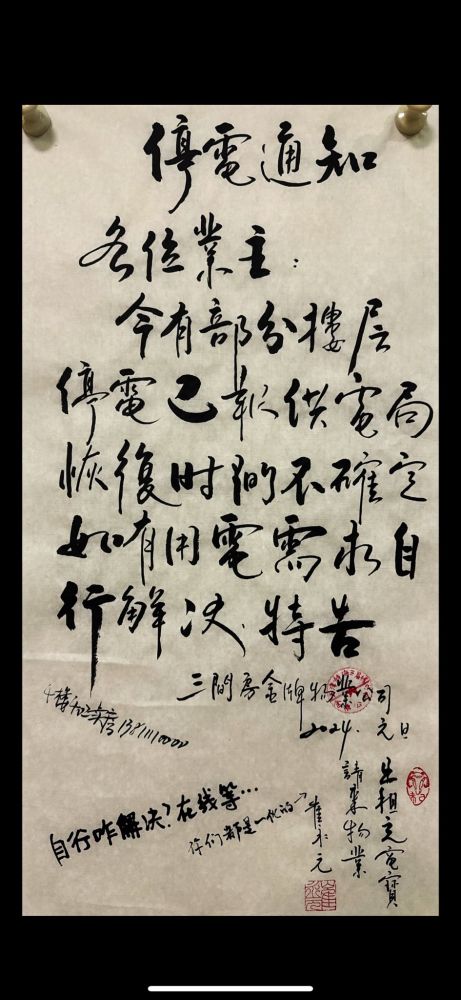 停電通知
各位業主：
今有部分樓层
停電已報供電局
恢復时间不確定
如有用電需求自
行解决.特告
三間房金牌物業公司
2024.元旦
出租充電寶
請業物業
崔永元
自行咋解决？在线等…
你们都是一伙的